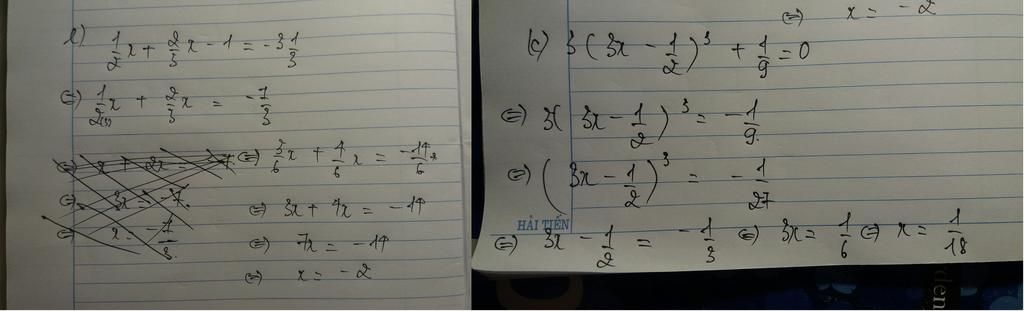 l) 1/2 x + 2/3 x - 1 = -3 1/3
⇔ 1/2 x + 2/3 x = -7/3
⇔ 3/6 x + 4/6 x = -14/6
⇔ 3x + 4x = -14
⇔ 7x = -14
⇔ x = -2
⇔ x = -2
k) 3(3x - 1/2)³ + 1/9 = 0
⇔ 3(3x - 1/2)³ = -1/9
⇔ (3x - 1/2)³ = -1/27
HẢI TIẾN
⇔ 3x - 1/2 = -1/3 ⇔ 3x = 1/6 ⇔ x = 1/18
den